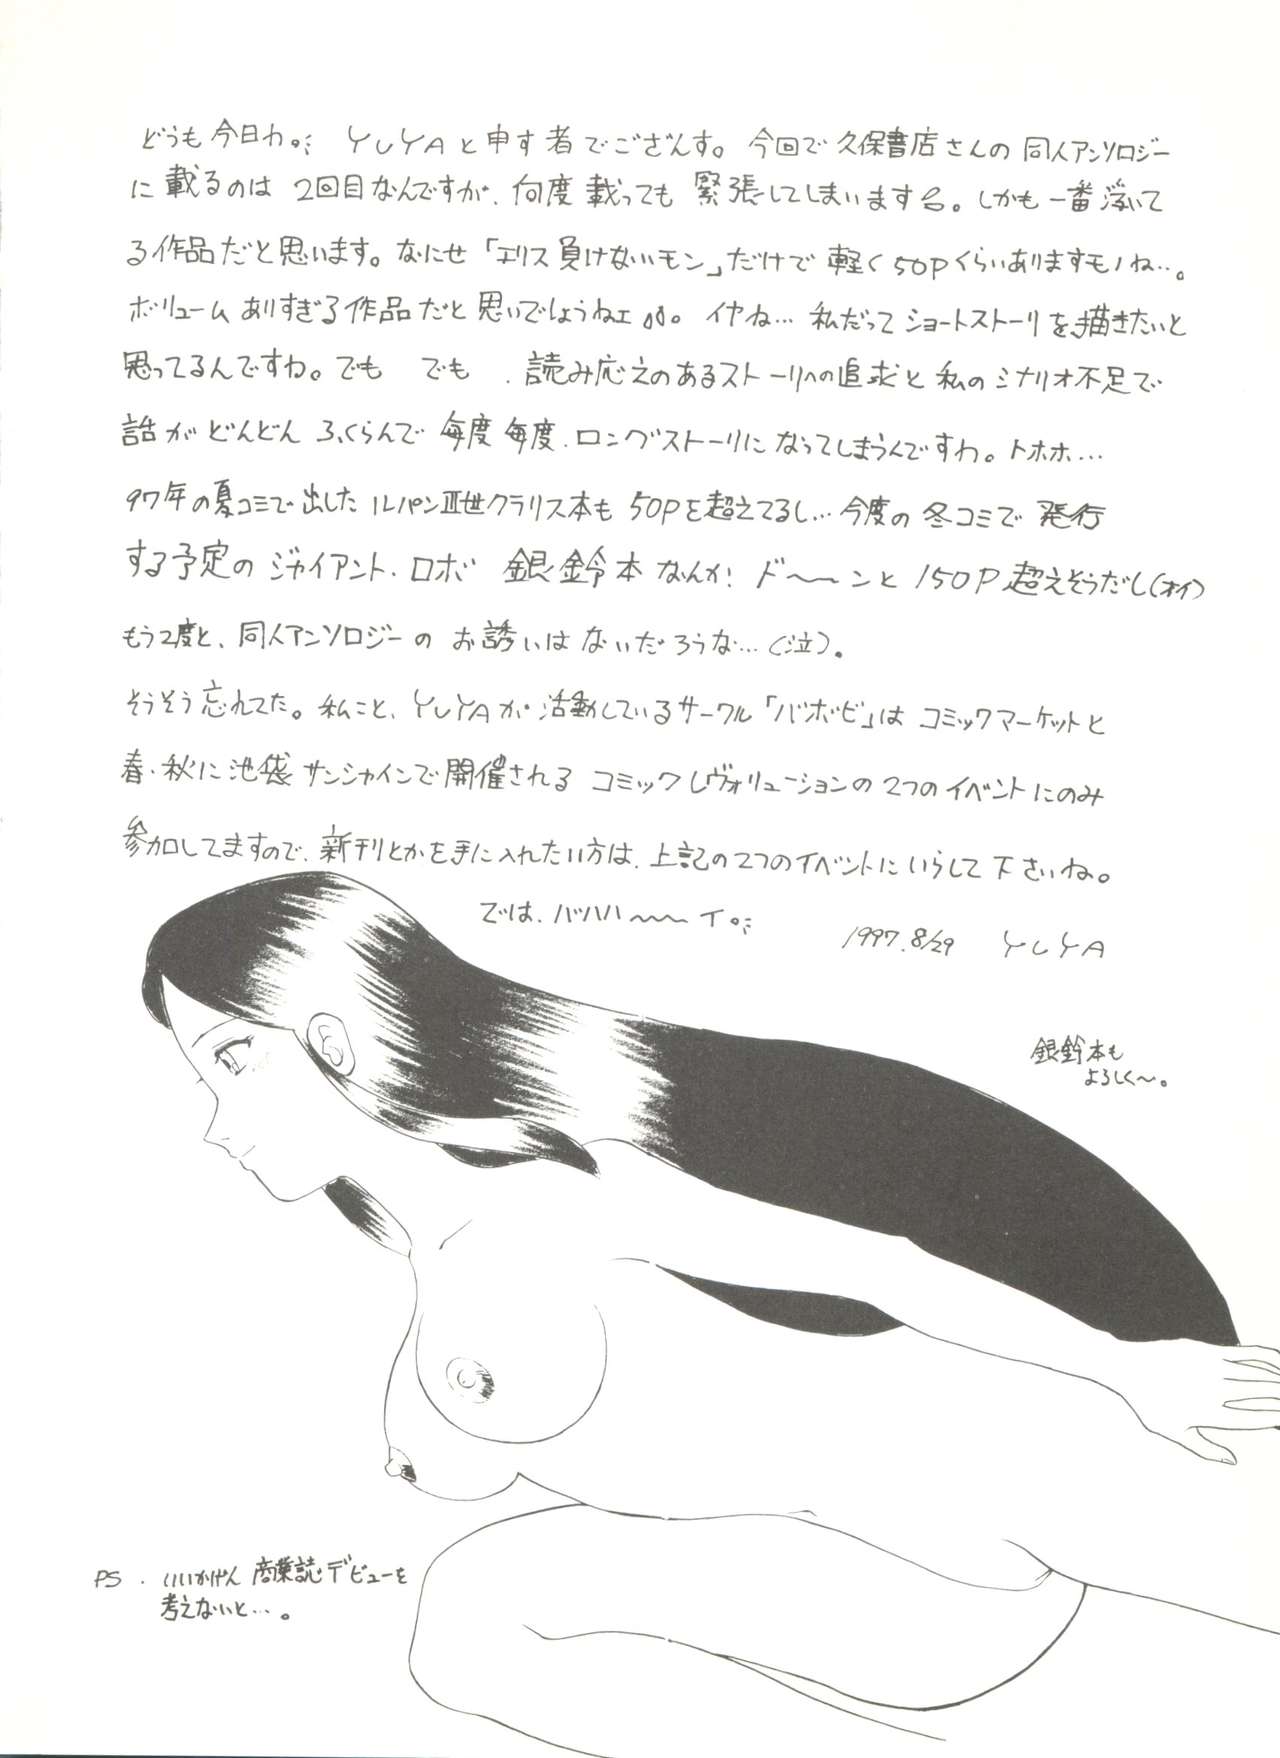 どうも今日わ。 YUYAと申す者でござんす。今回で久保書店さんの同人アンソロジー
に載るのは 2回目なんですが、何度載っても緊張してしまいます。しかも一番浮いて
る作品だと思います。なにせ「エリス負けないモン」だけで軽く50Pくらいありますモノね…。
ボリュームありすぎる作品だと思いでしょうねェ。イヤね…私だってショートストーリを描きたいと
思ってるんですわ。でも でも、読み応えのあるストーリへの追求と私のシナリオ不足で
話がどんどんふくらんで毎度毎度、ロングストーリになってしまうんですわ。トホホ…
97年の夏コミで出したルパンⅢ世クラリス本も50Pを超えてるし…今度の冬コミで発行
する予定のジャイアント・ロボ 銀鈴本なんか!ド〜〜ンと150P超えそうだし(オイ)
もう2度と、同人アンソロジーのお誘いはないだろうな…(泣)。
そうそう忘れてた。私こと、YUYAが活動しているサークル「バボビ」はコミックマーケットと
春・秋に池袋サンシャインで開催されるコミックレヴォリューションの2つのイベントにのみ
参加してますので、新刊とかを手に入れたい方は、上記の2つのイベントにいらして下さいね。
では、バハハ〜〜イ。
1997.8/29 YUYA
銀鈴本も
よろしく〜。
PS. いいかげん商業誌デビューを
考えないと…。